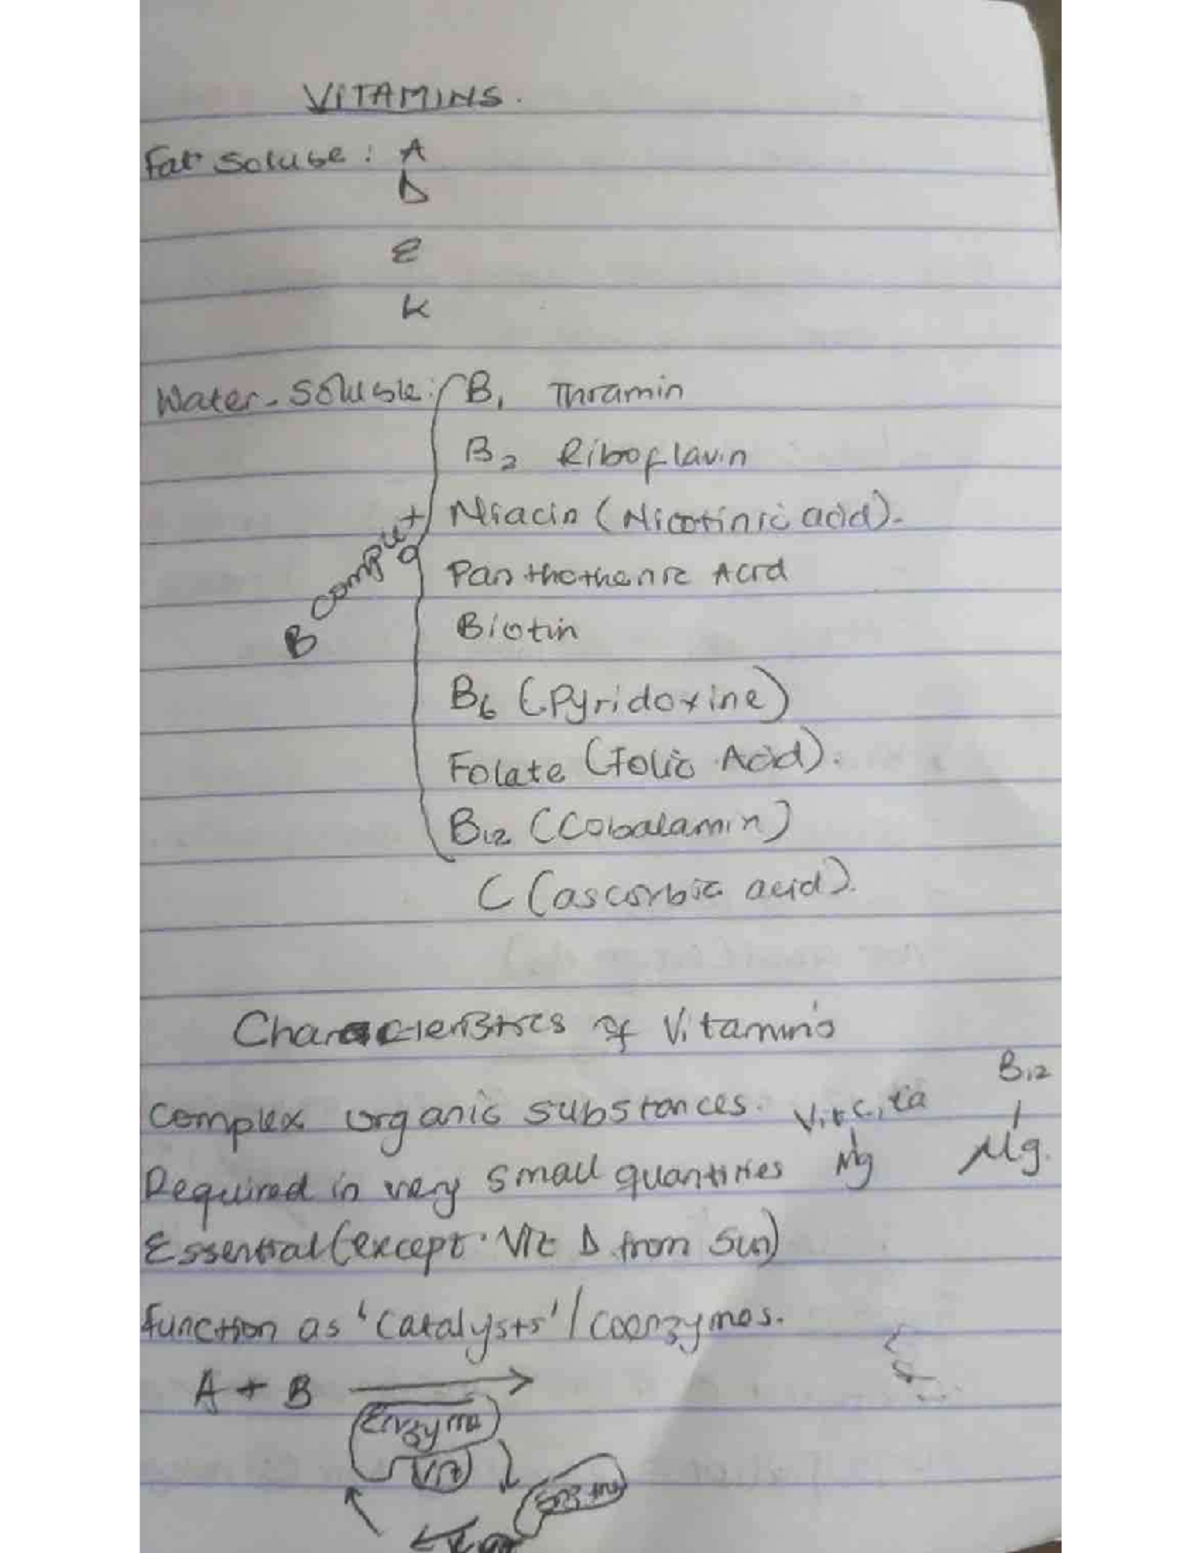 VITAMINS.
Fat Solube : A
D
E
K
Water-Soluble: B1 Thramin
B2 Riboflavin
Niacin (Nicotinic acid).
B Complex
Panthothenic Acid
Biotin
B6 (Pyridoxine)
Folate (Folic Acid).
B12 (Cobalamin)
C (ascorbic acid).
Characteristics of Vitamins
B12
Complex organic substances. Vit C,
Required in very small quantities Mg Mg.
Essential (except Vit D from Sun)
function as 'Catalysts' / coenzymes.
A + B
Enzyme
Vit